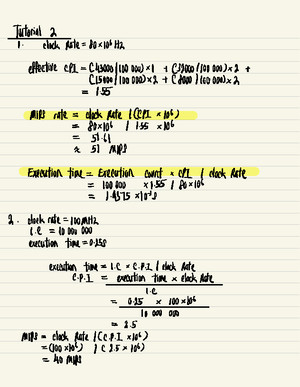 Tutorial 2
1. clock Rate = 80 × 10⁶ Hz
effective CPI = (45000 / 100 000) × 1 + (32000 / 100 000) × 2 +
(15000 / 100 000) × 2 + (8000 / 100 000) × 2
= 1.55
MIPS rate = clock Rate / (CPI × 10⁶)
= 80×10⁶ / 1.55 × 10⁶
= 51.61
≈ 51 MIPS
Execution time = Execution count × CPI / clock Rate
= 100 000 × 1.55 / 80 × 10⁶
= 1.9375 × 10⁻³ s
2. clock rate = 100 MHz
I.C = 10 000 000
execution time = 0.25s
execution time = I.C × C.P.I / clock Rate
C.P.I = execution time × clock Rate
I.C
= 0.25 × 100 × 10⁶
10 000 000
= 2.5
MIPS = clock Rate / (C.P.I × 10⁶)
= (100 × 10⁶) / (2.5 × 10⁶)
= 40 MIPS